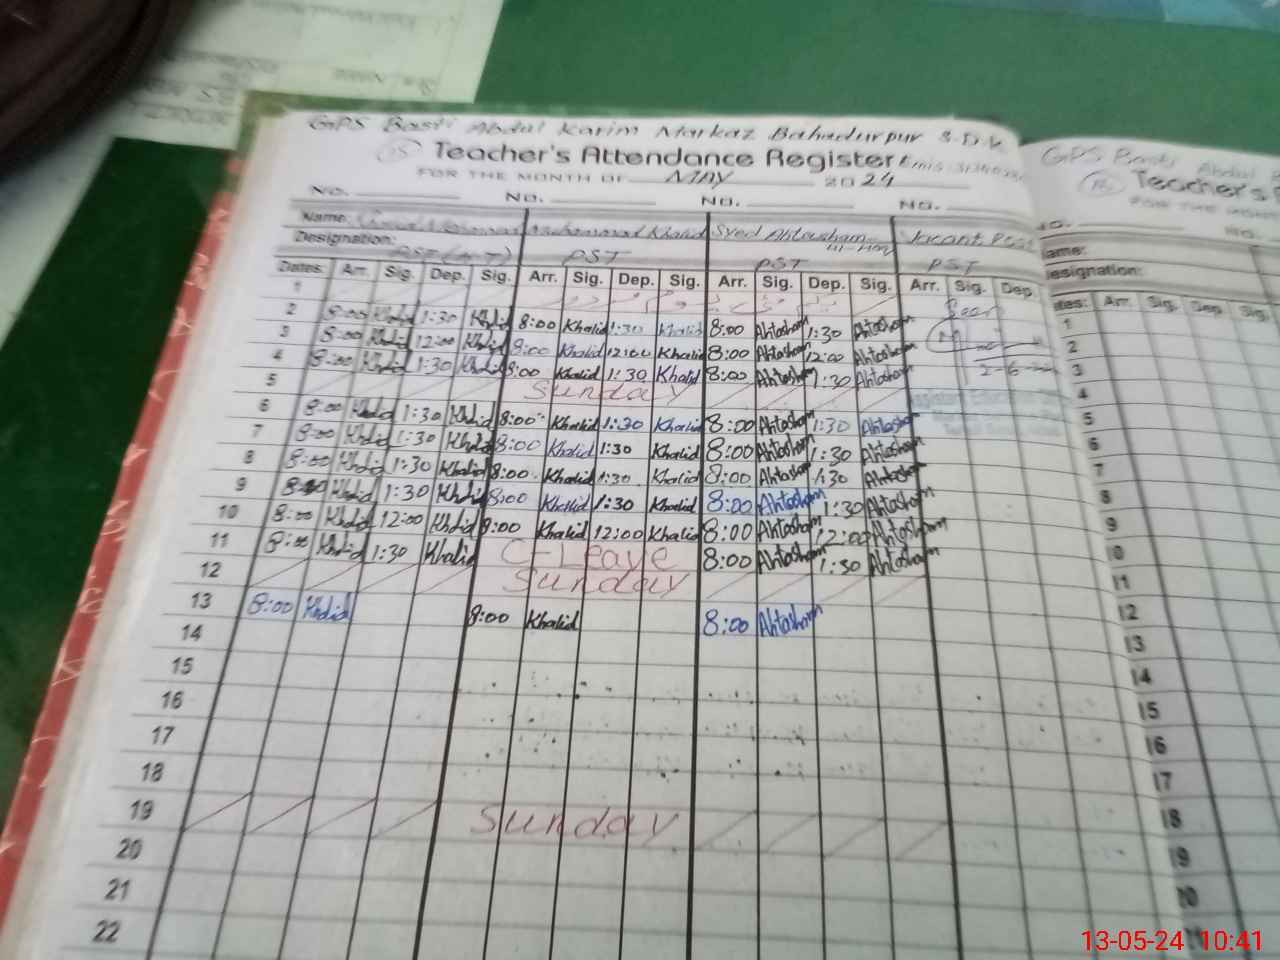 GPS Basti Abdul Karim Markaz Bahadurpur S.D.K
15 Teacher's Attendance Register
FOR THE MONTH OF MAY 2024
NO. NO. NO. NO.
Name: Muhammad Khalid Syed Ahtasham Vacant Post
Designation: PST PST PST
Dates: Arr. Sig. Dep. Sig. Arr. Sig. Dep. Sig. Arr. Sig. Dep. Sig. Arr. Sig. Dep.
1
2 8:00 Khalid 1:30 Khalid 8:00 Khalid 1:30 Khalid 8:00 Ahtasham 1:30 Ahtasham
3 8:00 Khalid 12:00 Khalid 8:00 Khalid 12:00 Khalid 8:00 Ahtasham 12:00 Ahtasham
4 8:00 Khalid 1:30 Khalid 8:00 Khalid 1:30 Khalid 8:00 Ahtasham 1:30 Ahtasham
5 Sunday
6 8:00 Khalid 1:30 Khalid 8:00 Khalid 1:30 Khalid 8:00 Ahtasham 1:30 Ahtasham
7 8:00 Khalid 1:30 Khalid 8:00 Khalid 1:30 Khalid 8:00 Ahtasham 1:30 Ahtasham
8 8:00 Khalid 1:30 Khalid 8:00 Khalid 1:30 Khalid 8:00 Ahtasham 1:30 Ahtasham
9 8:00 Khalid 1:30 Khalid 8:00 Khalid 1:30 Khalid 8:00 Ahtasham 1:30 Ahtasham
10 8:00 Khalid 12:00 Khalid 8:00 Khalid 12:00 Khalid 8:00 Ahtasham 12:00 Ahtasham
11 8:00 Khalid 1:30 Khalid C-Leave 8:00 Ahtasham 1:30 Ahtasham
12 Sunday
13 8:00 Khalid 8:00 Khalid 8:00 Ahtasham
14
15
16
17
18
19 Sunday
20
21
22
GPS Basti Abdul
Teacher's
Arr. Sig. Dep. Sig.
1
2
3
4
5
6
7
8
9
10
11
12
13
14
15
16
17
18
19
13-05-24 10:41